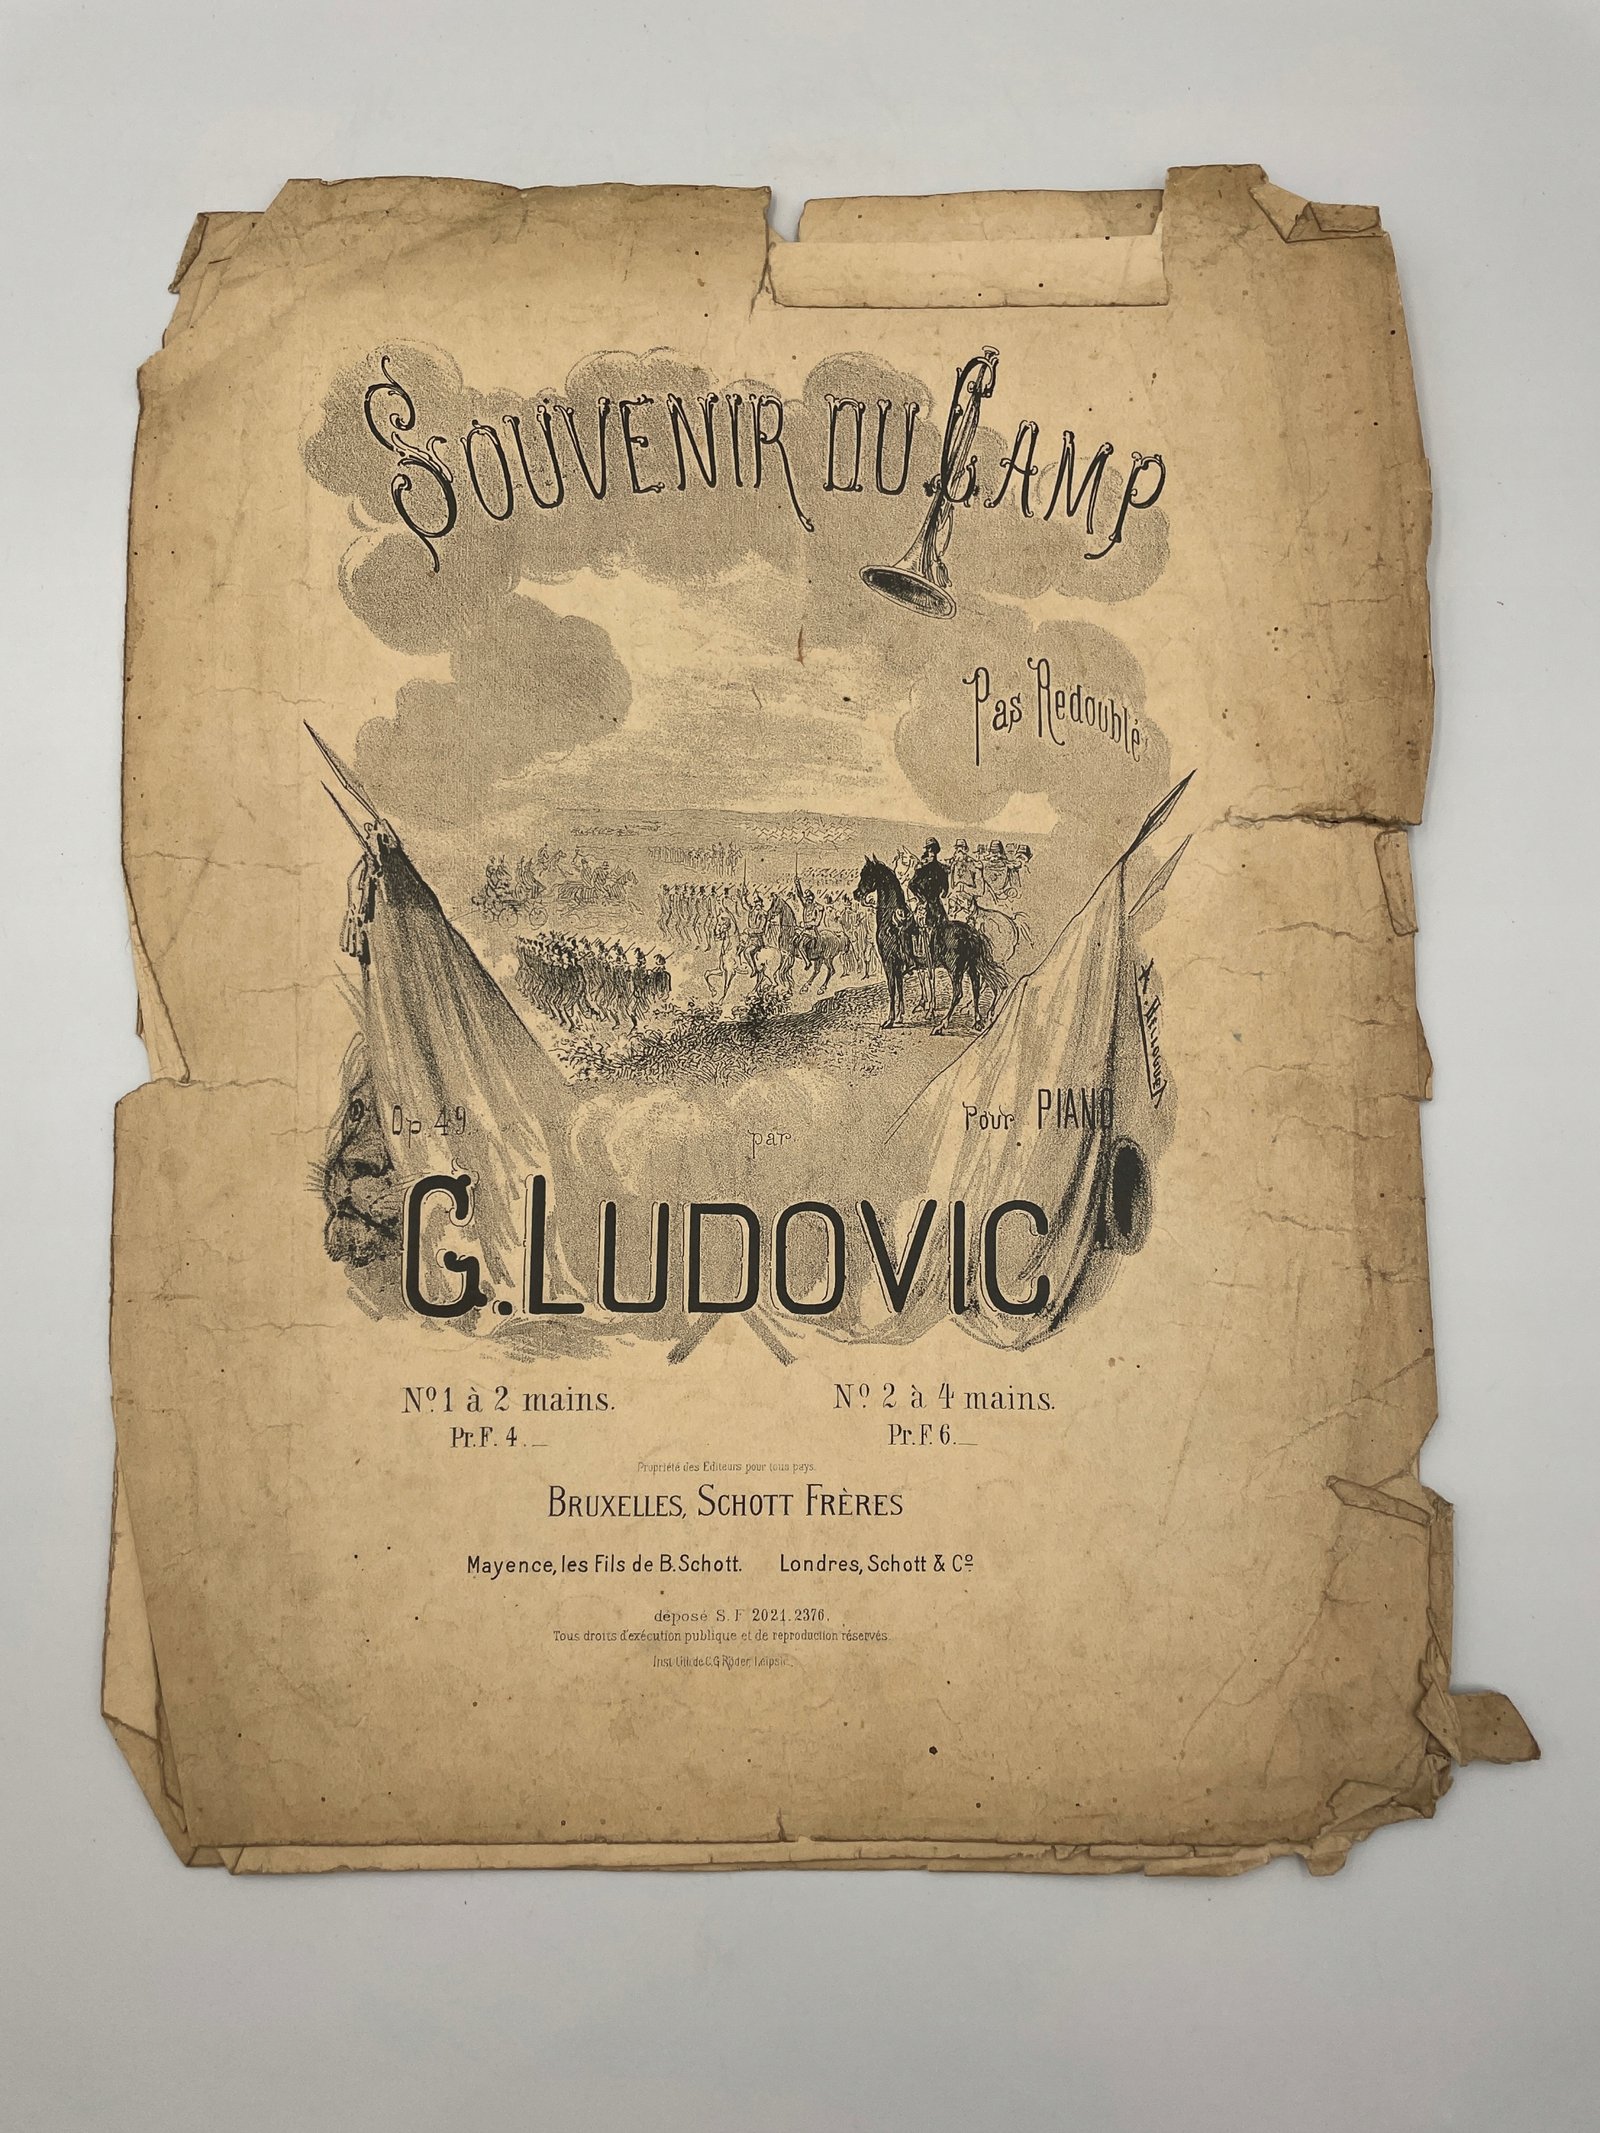 SOUVENIR DU CAMP
Pas Redoublé
Op. 49.
par
Pour PIANO
G. LUDOVIC
Nº 1 à 2 mains.
Pr. F. 4._
Nº 2 à 4 mains.
Pr. F. 6._
Propriété des Editeurs pour tous pays.
BRUXELLES, SCHOTT FRÈRES
Mayence, les Fils de B. Schott. Londres, Schott & Cº
déposé S. F 2021.2376.
Tous droits d'exécution publique et de reproduction réservés.
Inst. Lith. de C.G. Röder, Leipsic.